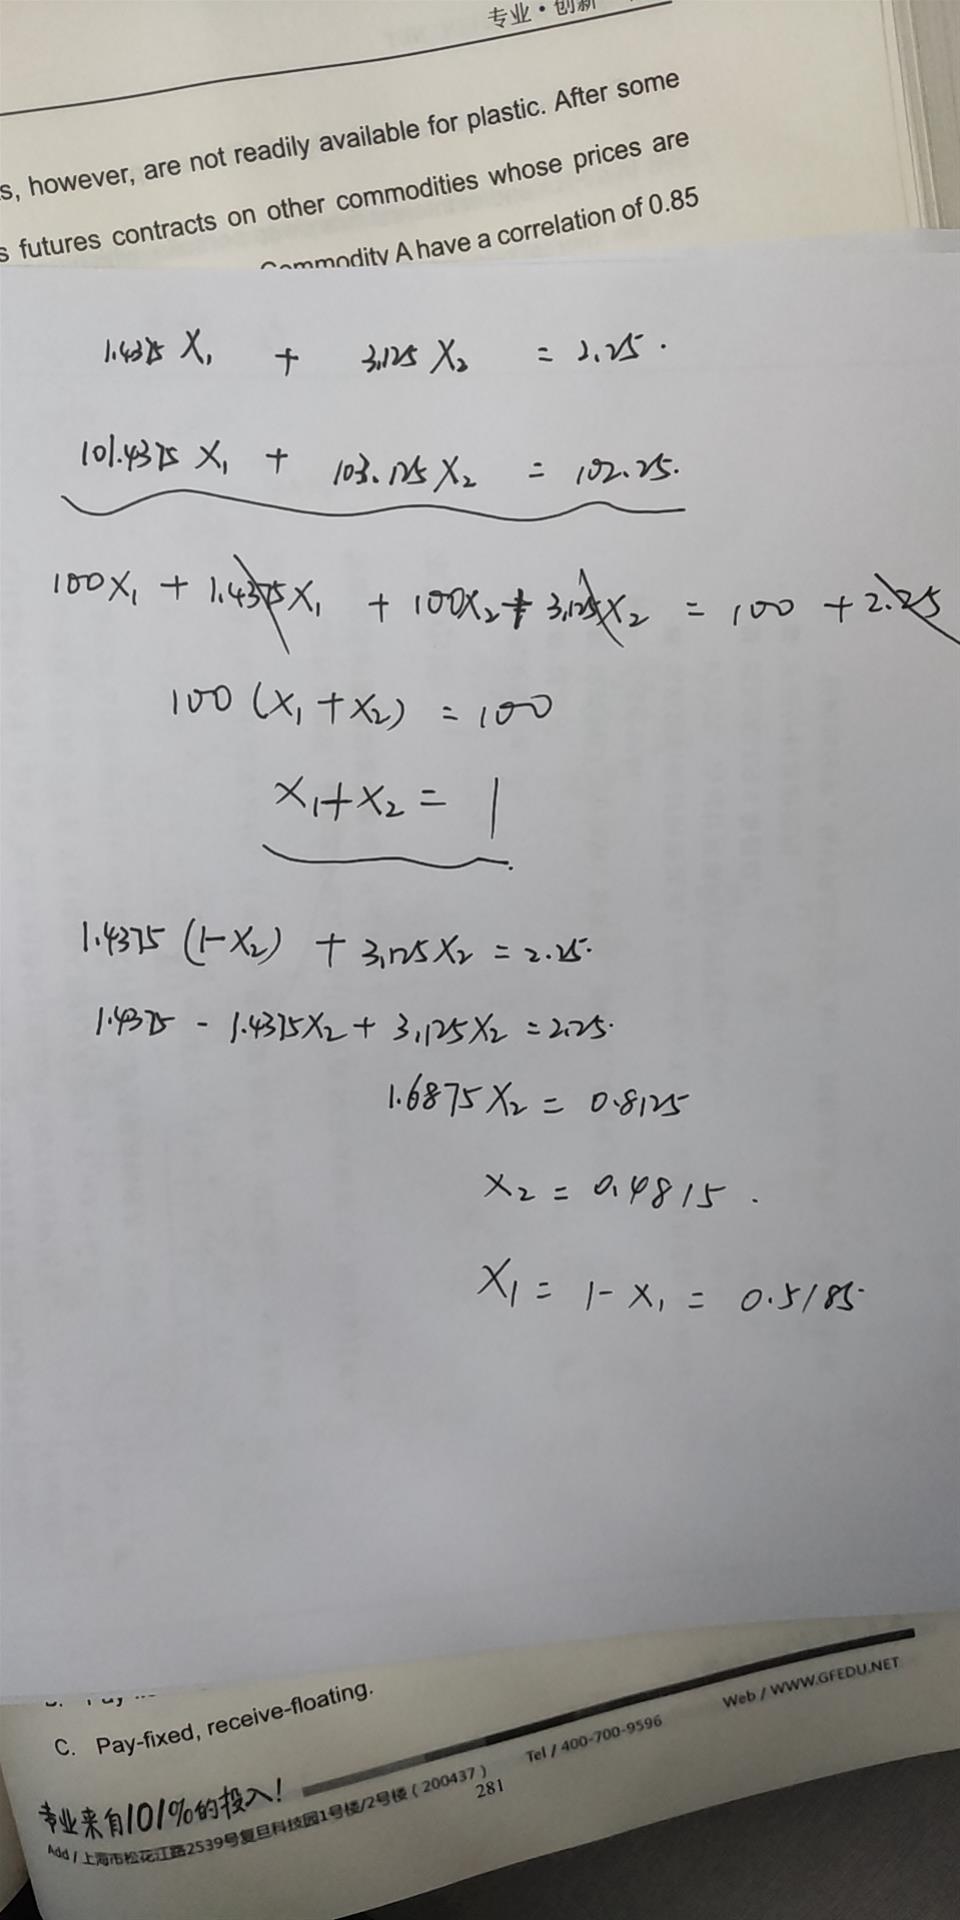 专业·创新
s, however, are not readily available for plastic. After some
s futures contracts on other commodities whose prices are
Commodity A have a correlation of 0.85
1.4375 X₁ + 3.125 X₂ = 2.25.
101.4375 X₁ + 103.125 X₂ = 102.25.
100X₁ + 1.4375X₁ + 100X₂ + 3.125X₂ = 100 + 2.25
100 (X₁ + X₂) = 100
X₁ + X₂ = 1
1.4375 (1-X₂) + 3.125X₂ = 2.25.
1.4375 - 1.4375X₂ + 3.125X₂ = 2.25.
1.6875X₂ = 0.8125
X₂ = 0.4815.
X₁ = 1 - X₁ = 0.5185.
C. Pay-fixed, receive-floating.
专业来自101%的投入!
Add / 上海市松花江路2539号复旦科技园1号楼/2号楼(200437) Tel / 400-700-9596 Web / WWW.GFEDU.NET
281